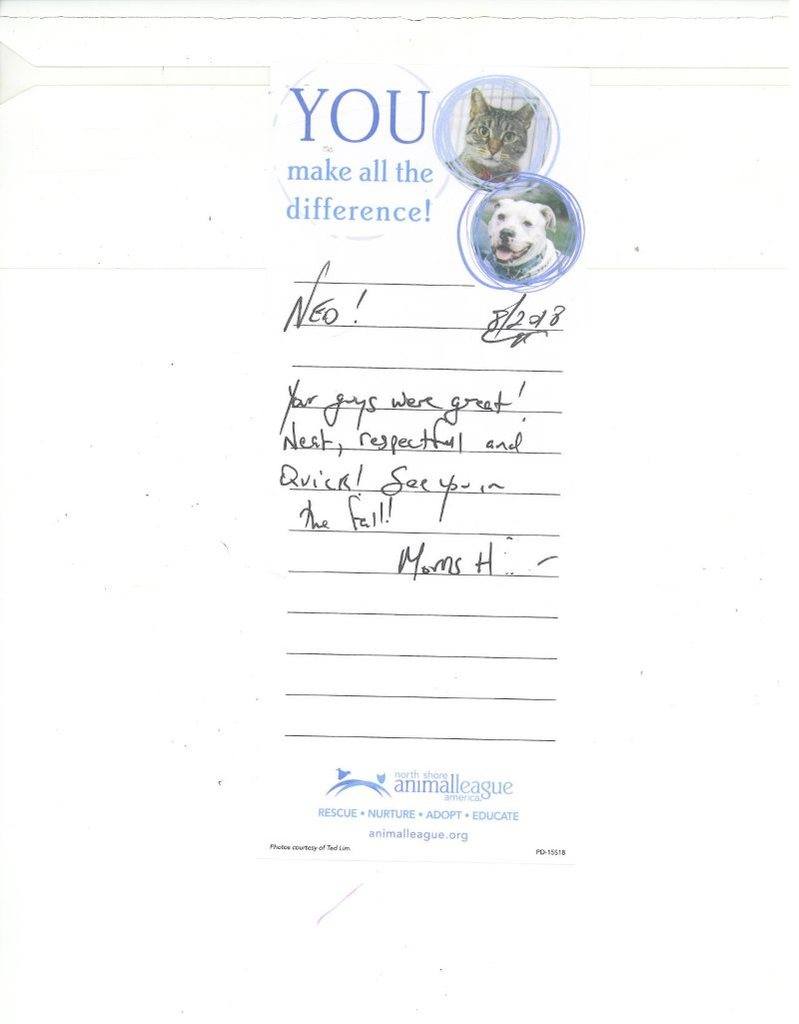 YOU
make all the
difference!
NEO! 8/2018
Your guys were great!
Neat, respectful and
Quick! See you in
the fall!
Morris H
north shore
animalleague
america
RESCUE • NURTURE • ADOPT • EDUCATE
animalleague.org
Photos courtesy of Ted Lim. PD-15518